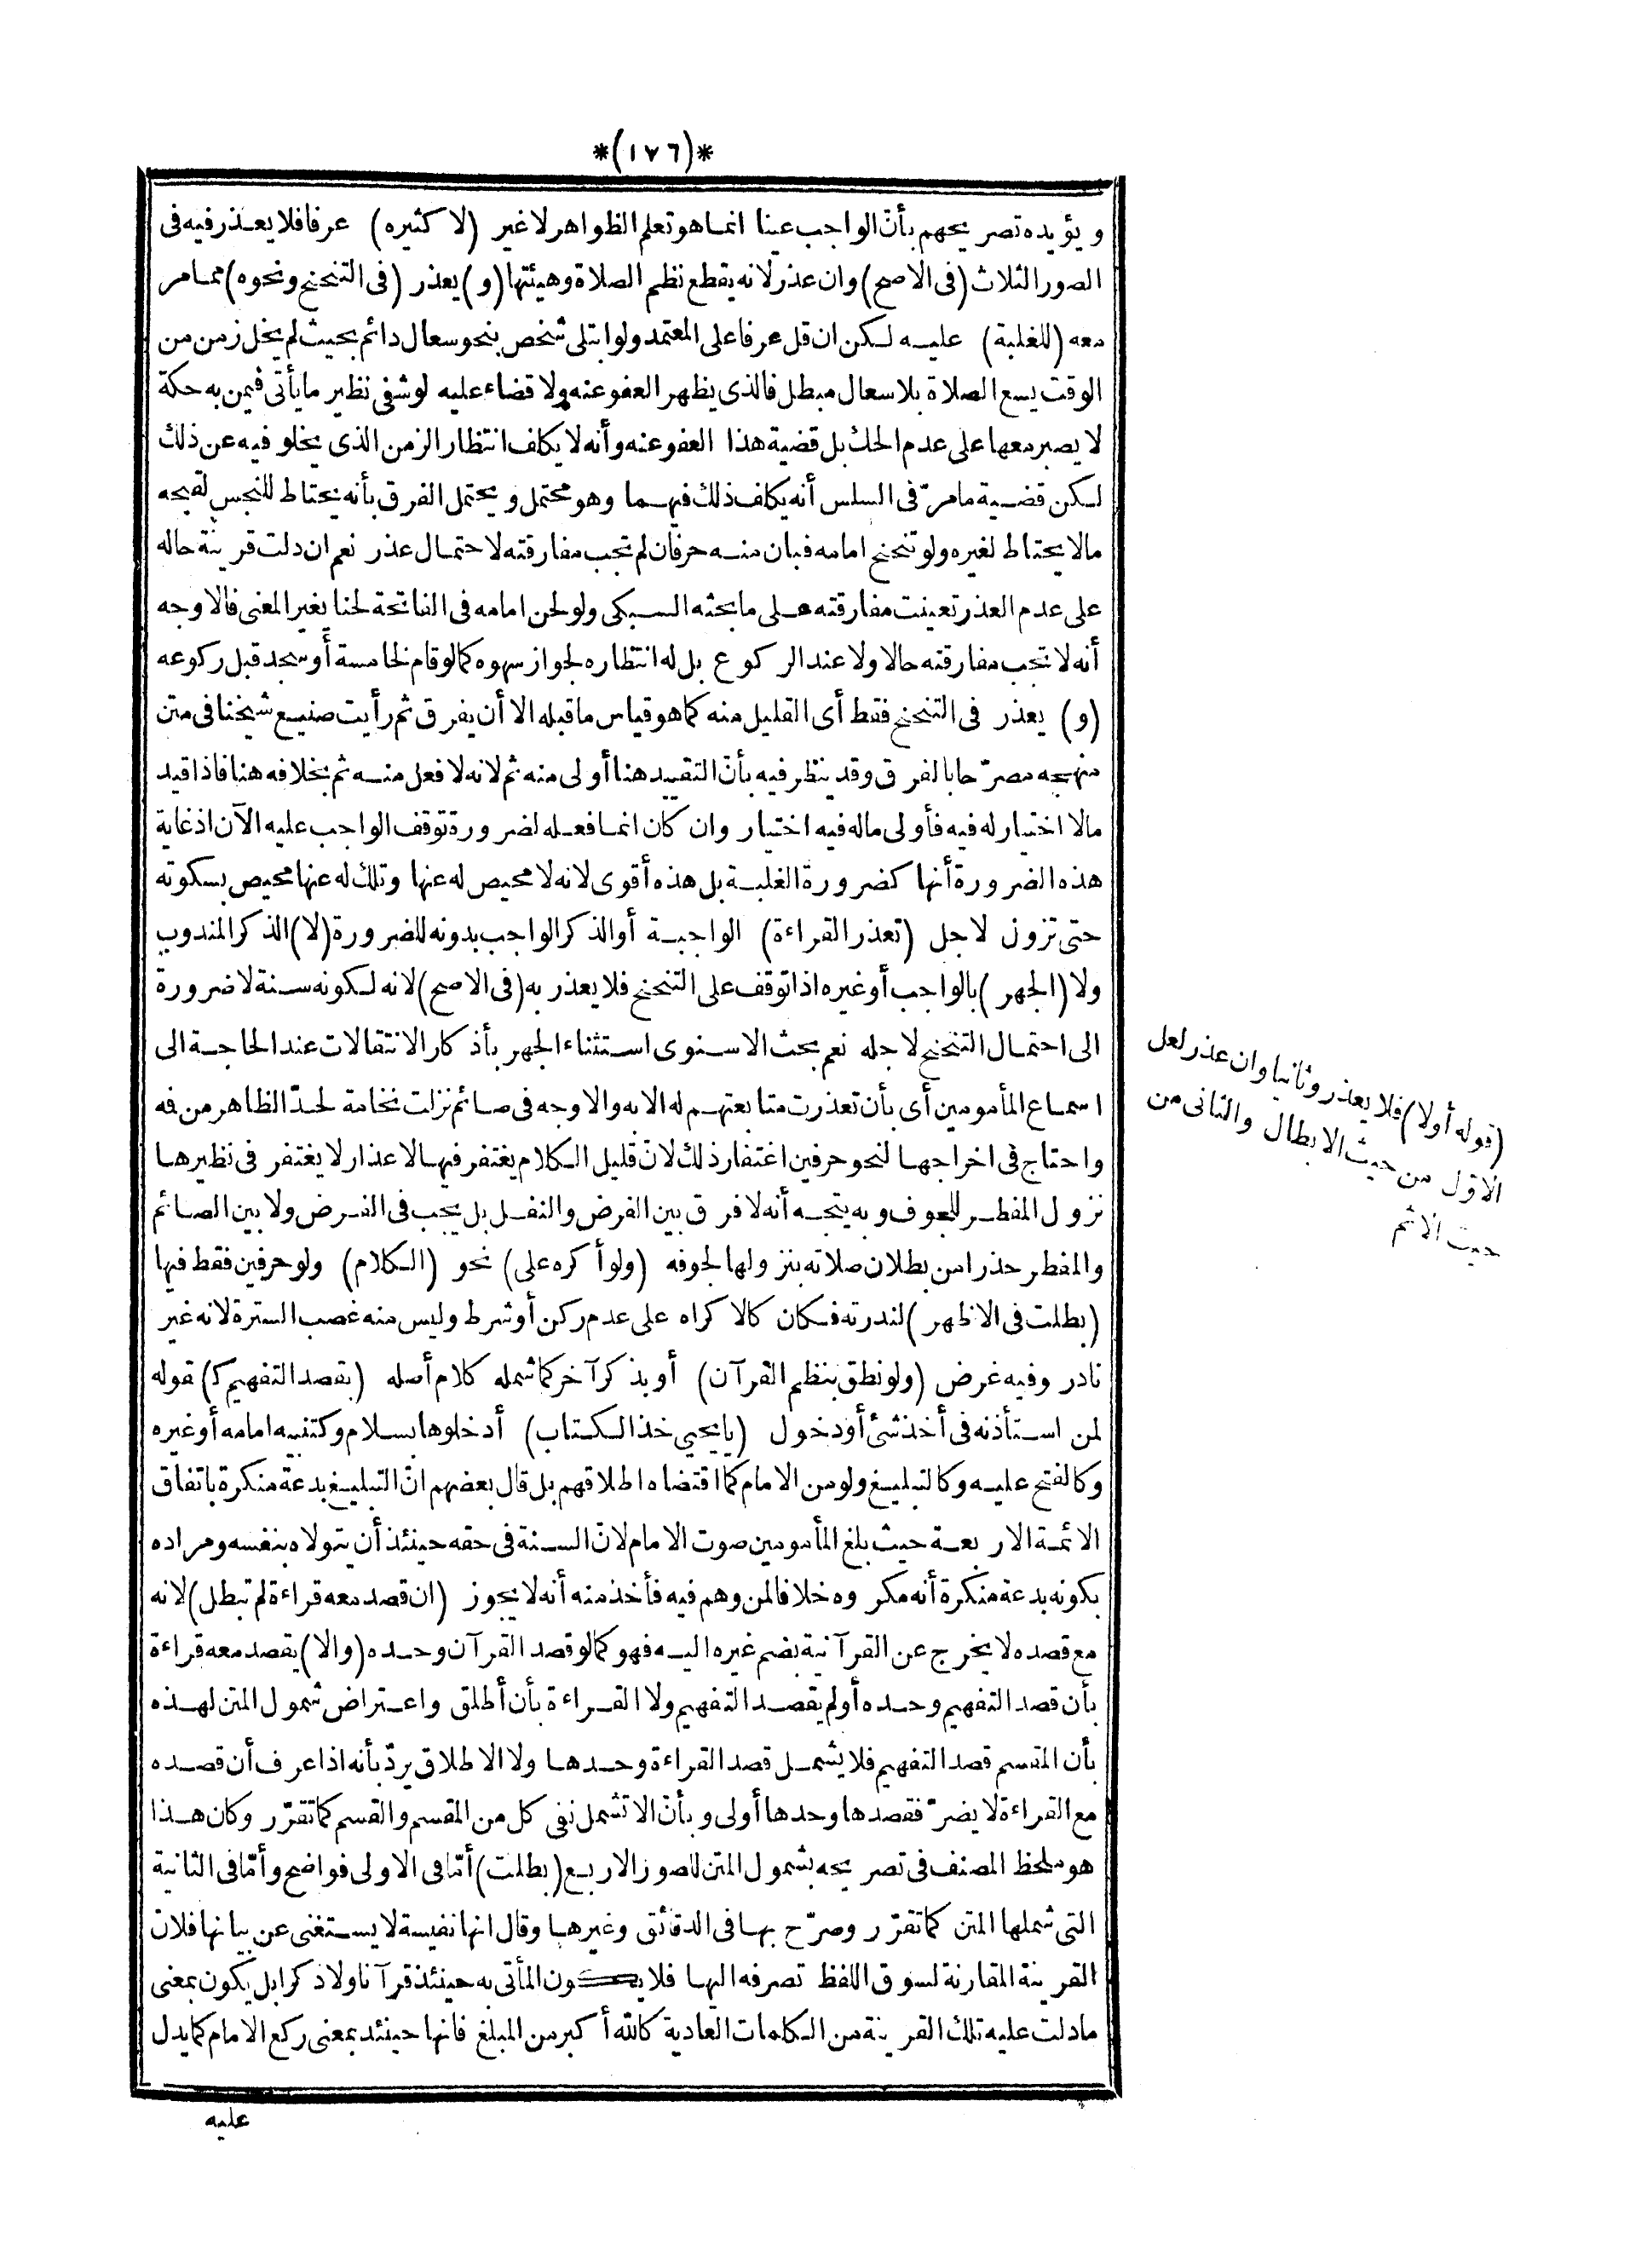 *(١٧٦)*
ويؤيده تصريحهم بأن الواجب عينا انما هو تعلم الظواهر لا غير (لا كثيره) عرفا فلا يعذر فيه فى
الصور الثلاث (فى الاصح) وان عذر لانه يقطع نظم الصلاة وهيئتها (و) يعذر (فى التنحنح ونحوه) مما مر
معه (للغلبة) عليه لكن ان قل عرفا على المعتمد ولو ابتلى شخص بنحو سعال دائم بحيث لم يخل زمن من
الوقت يسع الصلاة بلا سعال مبطل فالذى يظهر العفو عنه ولا قضاء عليه لو شفى نظير ما يأتى فيمن به حكة
لا يصبر معها على عدم الحك بل قضية هذا العفو عنه وأنه لا يكلف انتظار الزمن الذى يخلو فيه عن ذلك
لكن قضية مامرّ فى السلس أنه يكلف ذلك فيهما وهو محتمل ويحتمل الفرق بأنه يحتاط للنجس لقبحه
مالا يحتاط لغيره ولو تنحنح امامه فبان منه حرفان لم تجب مفارقته لاحتمال عذر نعم ان دلت قرينة حاله
على عدم العذر تعينت مفارقته على ما بحثه السبكى ولو لحن امامه فى الفاتحة لحنا يغير المعنى فالاوجه
أنه لا تجب مفارقته حالا ولا عند الركوع بل له انتظاره لجواز سهوه كما لو قام لخامسة أو سجد قبل ركوعه
(و) يعذر فى التنحنح فقط أى القليل منه كما هو قياس ما قبله الا أن يفرق ثم رأيت صنيع شيخنا فى متن
منهجه مصرّحا بالفرق وقد ينظر فيه بأن التقييد هنا أولى منه ثم لانه لا فعل منه ثم بخلافه هنا فاذا قيد
مالا اختيار له فيه فأولى ماله فيه اختيار وان كان انما فعله لضرورة توقف الواجب عليه الآن اذ غاية
هذه الضرورة أنها كضرورة الغلبة بل هذه أقوى لانه لا محيص له عنها وتلك له عنها محيص بسكوته
حتى تزول لاجل (تعذر القراءة) الواجبة أو الذكر الواجب بدونه للضرورة (لا) الذكر المندوب
ولا (الجهر) بالواجب أو غيره اذا توقف على التنحنح فلا يعذر به (فى الاصح) لانه لكونه سنة لا ضرورة
الى احتمال التنحنح لاجله نعم بحث الاسنوى استثناء الجهر بأذكار الانتقالات عند الحاجة الى
اسماع المأمومين أى بأن تعذرت متابعتهم له الا به والاوجه فى صائم نزلت نخامة لحدّ الظاهر من فمه
واحتاج فى اخراجها لنحو حرفين اغتفار ذلك لان قليل الكلام يغتفر فيها لاعذار لا يغتفر فى نظيرها
نزول المفطر للجوف وبه يتجه أنه لا فرق بين الفرض والنفل بل يجب فى الفرض ولا بين الصائم
والمفطر حذرا من بطلان صلاته بنزولها لجوفه (ولو أكره على) نحو (الكلام) ولو حرفين فقط فيها
(بطلت فى الاظهر) لندرته فكان كالاكراه على عدم ركن أو شرط وليس منه غصب السترة لانه غير
نادر وفيه غرض (ولو نطق بنظم القرآن) أو بذكر آخر كما شمله كلام أصله (بقصد التفهيم ك) قوله
لمن استأذنه فى أخذ شئ أو دخول (يا يحيى خذ الكتاب) أدخلوها بسلام وكتنبيه امامه أو غيره
وكالفتح عليه وكالتبليغ ولو من الامام كما اقتضاه اطلاقهم بل قال بعضهم انّ التبليغ بدعة منكرة باتفاق
الائمة الاربعة حيث بلغ المأمومين صوت الامام لانّ السنة فى حقه حينئذ أن يتولاه بنفسه ومراده
بكونه بدعة منكرة أنه مكروه خلافا لمن وهم فيه فأخذ منه أنه لا يجوز (ان قصد معه قراءة لم تبطل) لانه
مع قصده لا يخرج عن القرآنية بضم غيره اليه فهو كما لو قصد القرآن وحده (والا) يقصد معه قراءة
بأن قصد التفهيم وحده أو لم يقصد التفهيم ولا القراءة بأن أطلق واعتراض شمول المتن لهذه
بأن المقسم قصد التفهيم فلا يشمل قصد القراءة وحدها ولا الاطلاق يردّ بأنه اذا عرف أن قصده
مع القراءة لا يضرّ فقصدها وحدها أولى وبأنّ الا تشمل نفى كل من المقسم والقسم كما تقرّر وكان هذا
هو ملحظ المصنف فى تصريحه بشمول المتن للصور الاربع (بطلت) أمّا فى الاولى فواضح وأمّا فى الثانية
التى شملها المتن كما تقرّر وصرّح بها فى الدقائق وغيرها وقال انها نفيسة لا يستغنى عن بيانها فلان
القرينة المقارنة لسوق اللفظ تصرفه اليها فلا يكون المأتى به حينئذ قرآنا ولا ذكرا بل يكون بمعنى
ما دلت عليه تلك القرينة من الكلمات العادية كالله أكبر من المبلغ فانها حينئذ بمعنى ركع الامام كما يدل
عليه
(قوله أولا) فلا يعذر وثانيا وان عذر لعل
الاوّل من حيث الابطال والثانى من
حيث الاثم